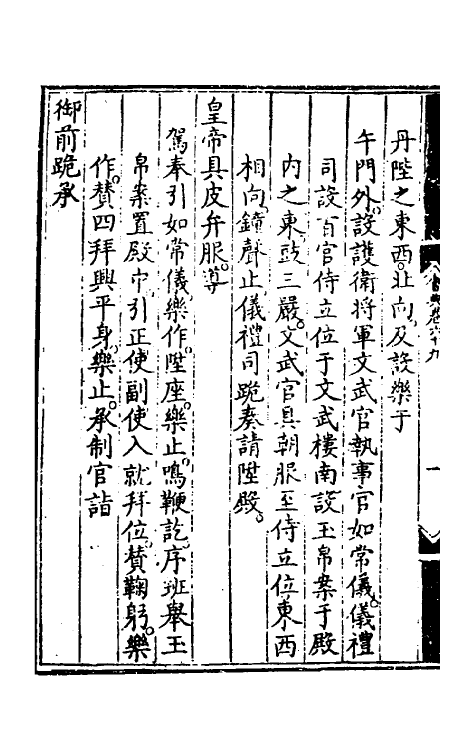 丹陛之東西。北向。及設樂于
午門外。設護衛將軍文武官執事官如常儀。儀禮
司設百官侍立位于文武樓南設玉帛案于殿
内之東。鼓三嚴。文武官具朝服至侍立位東西
相向。鐘聲止。儀禮司跪奏請陞殿。
皇帝具皮弁服。導
駕奉引如常儀。樂作。陞座。樂止。鳴鞭訖。序班舉玉
帛案置殿中。引正使副使入就拜位。贊鞠躬。樂
作。贊四拜興平身。樂止。承制官詣
御前跪承
卷六十九
一